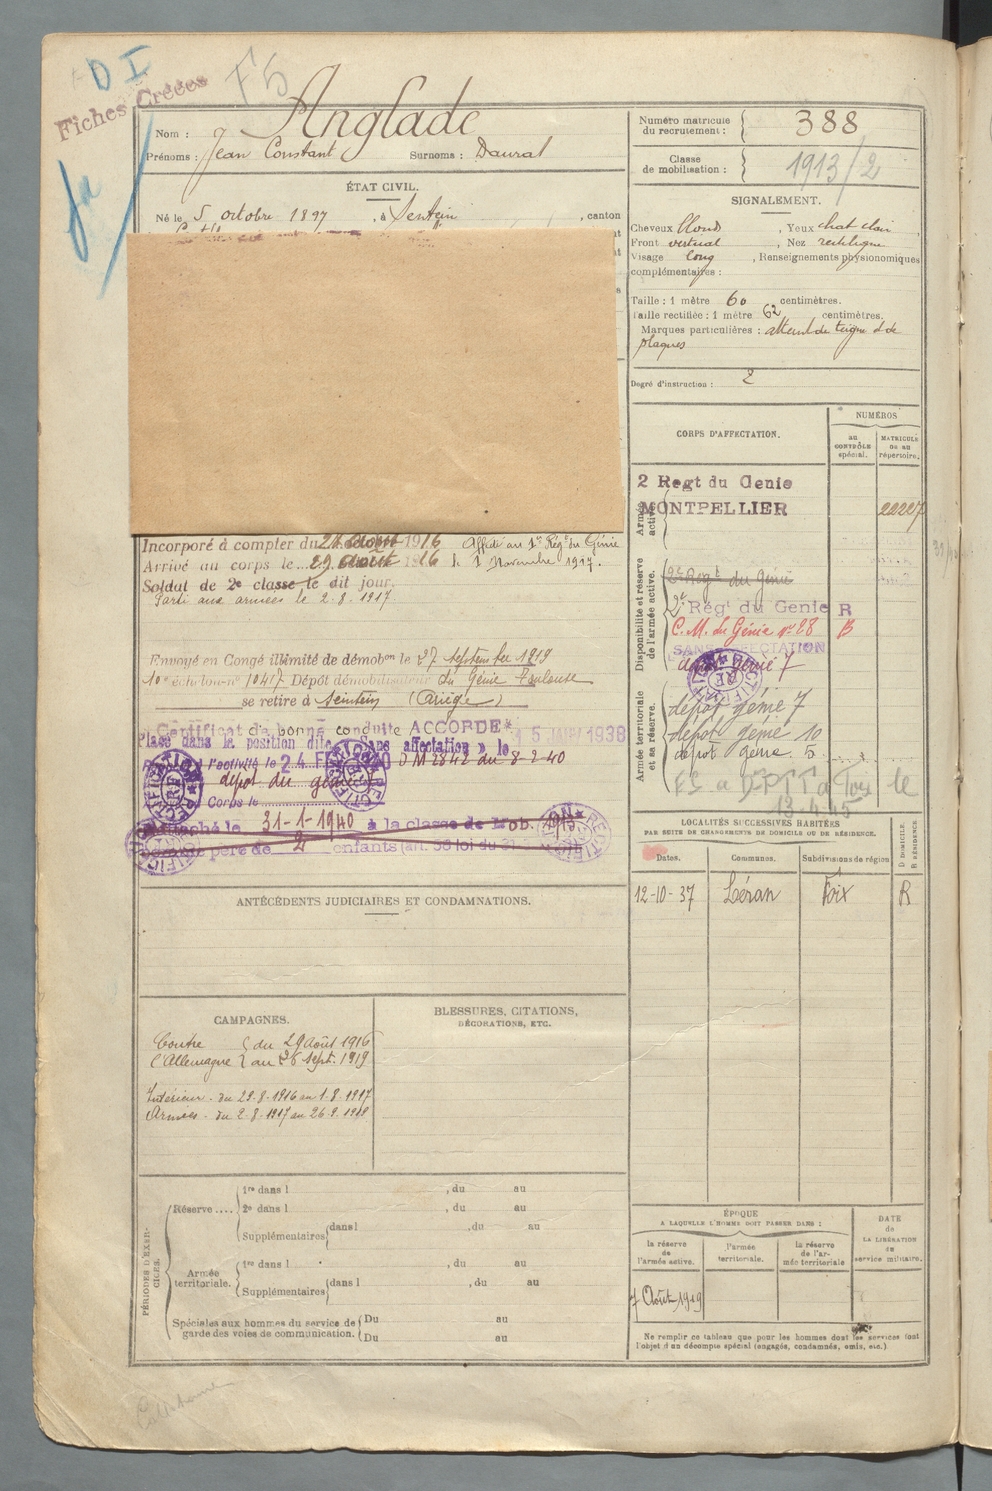 D I
F5
Fiches Créées
Anglade
Nom :
Prénoms : Jean Constant Surnoms : Daural
Numéro matricule du recrutement : 388
Classe de mobilisation : 1913/2
ÉTAT CIVIL.
Né le 5 octobre 1897, à Sentein, canton
SIGNALEMENT.
Cheveux blond, Yeux chat clair
Front vertical, Nez rectiligne
Visage long, Renseignements physionomiques
complémentaires :
Taille : 1 mètre 60 centimètres.
Taille rectifiée : 1 mètre 62 centimètres.
Marques particulières : atteint de teigne et de
plaques
Degré d'instruction : 2
CORPS D'AFFECTATION.
NUMÉROS
au CONTRÔLE spécial.
MATRICULE ou au répertoire.
Armée active.
2 Regt du Genie
MONTPELLIER
Incorporé à compter du 24 Août 1916 Affecté au 1er Régt du Génie
Arrivé au corps le 29 Août 1916 le 1 Novembre 1917.
Soldat de 2e classe le dit jour.
Parti aux armées le 2.8.1917
Disponibilité et réserve de l'armée active.
2e Régt du Génie
2e Régt du Genie R
C.M. du Génie n° 28 B
SANS AFFECTATION
dépôt génie 7
Envoyé en Congé illimité de démobon le 27 septembre 1919
10e échelon n° 10417 Dépôt démobilisateur du Génie Toulouse
se retire à Sentein (Ariège)
Certificat de bonne conduite ACCORDE
Placé dans la position dite « Sans affectation » le 15 JANV 1938
l'activité le 24 F DM 2842 du 8-2-40
dépôt du génie
Corps le
Rattaché le 31-1-1940 à la classe de Mob. 1913
père de 2 enfants
Armée territoriale et sa réserve.
dépôt génie 7
dépôt génie 10
dépôt génie 5
13-4-45
LOCALITÉS SUCCESSIVES HABITÉES
PAR SUITE DE CHANGEMENTS DE DOMICILE OU DE RÉSIDENCE.
Dates. Communes. Subdivisions de région D DOMICILE. R RÉSIDENCE.
12-10-37 Léran Foix R
ANTÉCÉDENTS JUDICIAIRES ET CONDAMNATIONS.
CAMPAGNES.
Contre { du 29 Août 1916
l'Allemagne } au 26 Sept. 1919
Intérieur. du 29.8.1916 au 1.8.1917
Armées. du 2.8.1917 au 26.9.1919
BLESSURES, CITATIONS,
DÉCORATIONS, ETC.
PÉRIODES D'EXERCICES.
Réserve....
1re dans l , du au
2e dans l , du au
Supplémentaires dans l , du au
Armée territoriale.
1re dans l , du au
Supplémentaires dans l , du au
Spéciales aux hommes du service de garde des voies de communication.
Du au
Du au
ÉPOQUE
A LAQUELLE L'HOMME DOIT PASSER DANS :
la réserve de l'armée active.
l'armée territoriale.
la réserve de l'armée territoriale
DATE de LA LIBÉRATION du service militaire.
7 Août 1919
Ne remplir ce tableau que pour les hommes dont les services font
l'objet d'un décompte spécial (engagés, condamnés, omis, etc.)